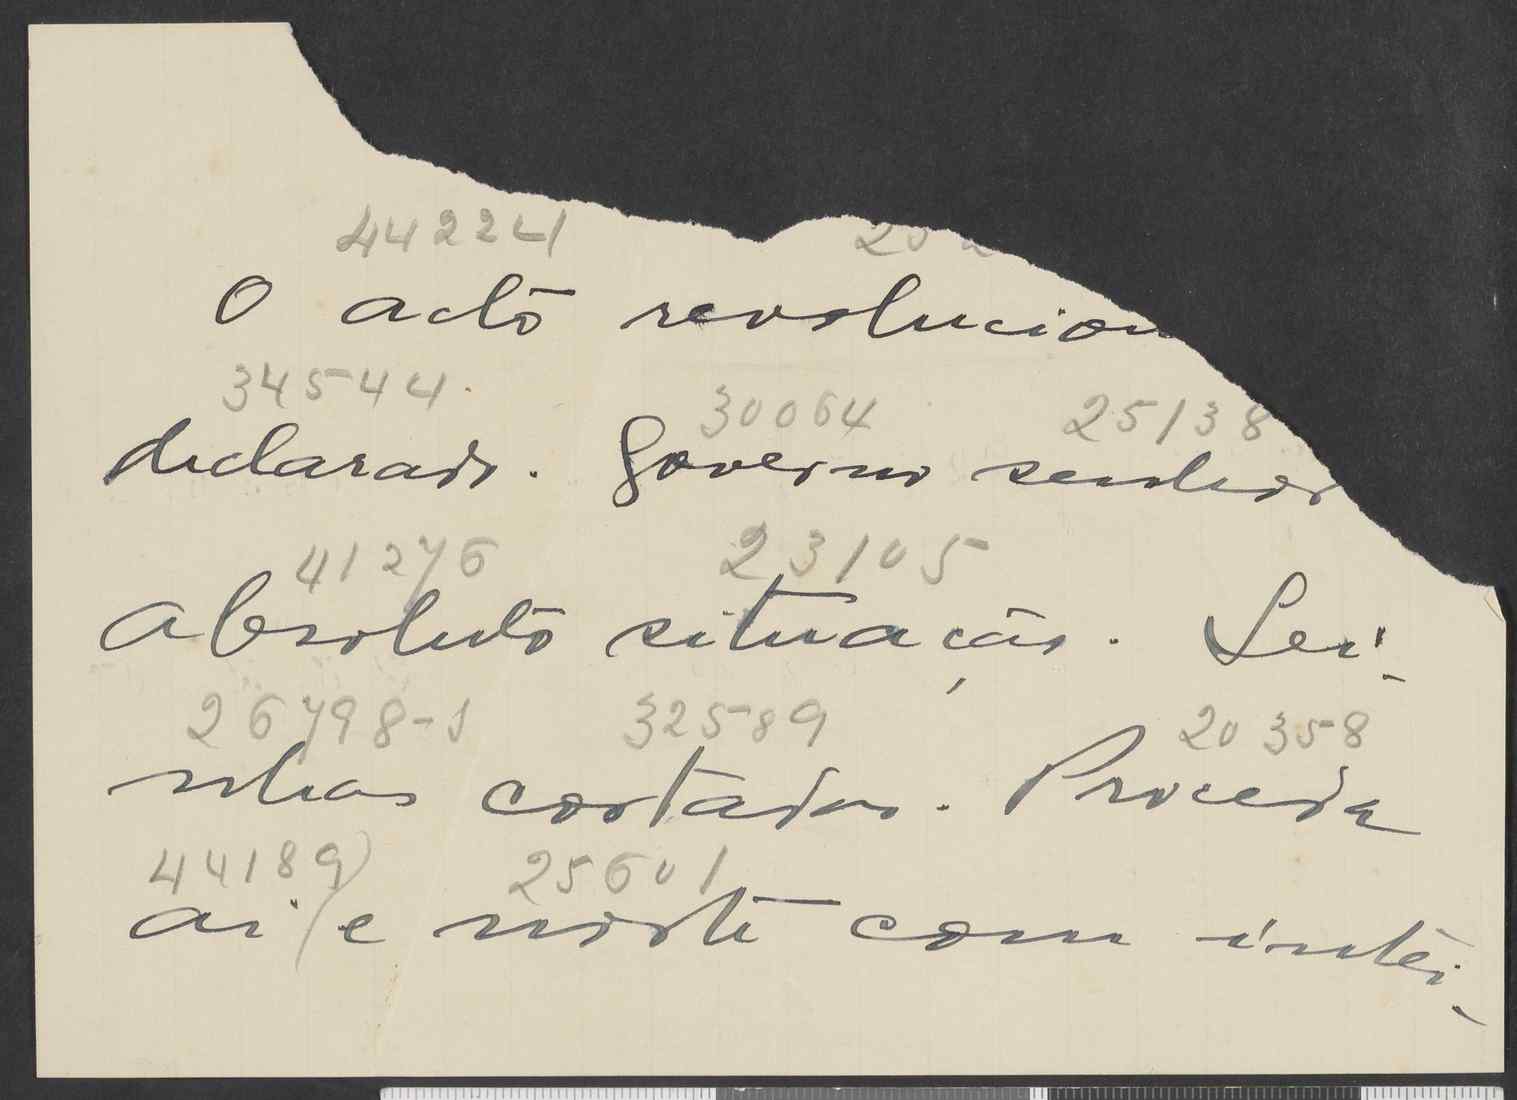 44224
O acto revolucion
34544 30064 25138
declarado. Governo senhor
41276 23105
absoluto situação. Li-
26798-S 32589 20358
nhas cortadas. Proceda
44189 25601
ai e norte com intei-